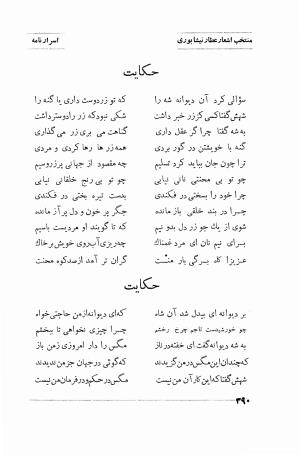 منتخب اشعار عطار نیشابوری
اسرار نامه
حکایت
سؤالی کرد آن دیوانه شه را که تو زر دوست داری یا گنه را
شهش گفتا کسی کز زر خبر داشت شکی نبود که زر را دوستر داشت
به شه گفتا چرا گر عقل داری گناهت می بری زر می گذاری
گنه با خویشتن در گور بردی همه زرها رها کردی و مردی
ترا چون جان بباید کرد تسلیم چه مقصود از جهانی پر زر و سیم
چو تو بی محنتی نانی نیابی چو تو بی رنج خلقانی نیابی
چرا خود را بسختی در فکندی دلت تیره بختی در فکندی
چرا در بند خلقی باز مانده جگر پر خون و دل پر آز مانده
شوی از یک جو زر دل بدو نیم که تا گویند او مردیست با سیم
برای نیم نان ای مرد غمناک چه ریزی آب روی خویش بر خاک
عزیزا کاه برگی بار منت گران تر آمد از صد کوه محنت
حکایت
بر دیوانه ای بیدل شد آن شاه که ای دیوانه از من حاجتی خواه
چو خورشیدست تاجم چرخ رخشم چرا چیزی نخواهی تا ببخشم
به شه دیوانه گفت ای خفته در ناز مگس را دار امروزی زمن باز
که چندان این مگس در من گزیدند که گوئی در جهان جز من ندیدند
شهش گفتا که این کار آن من نیست مگس در حکم و در فرمان من نیست
۳۹۰